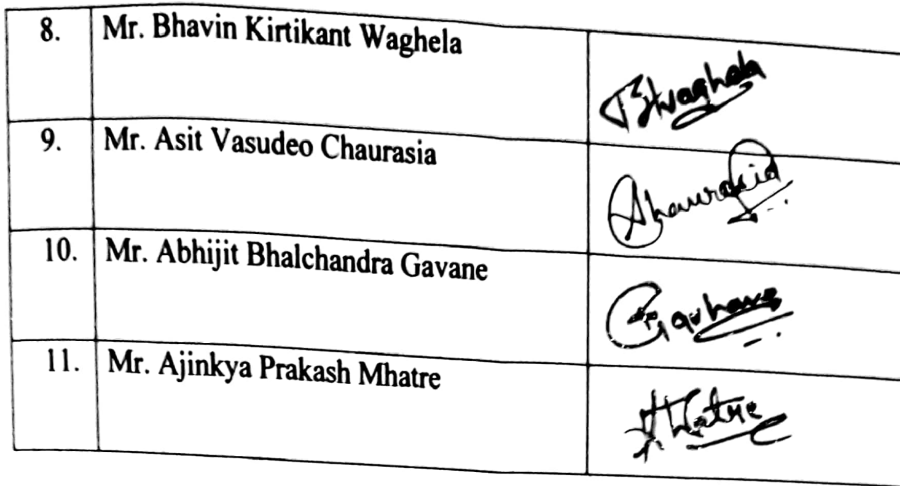 8. Mr. Bhavin Kirtikant Waghela
Bhwaghela
9. Mr. Asit Vasudeo Chaurasia
Ahaurasia
10. Mr. Abhijit Bhalchandra Gavane
11. Mr. Ajinkya Prakash Mhatre